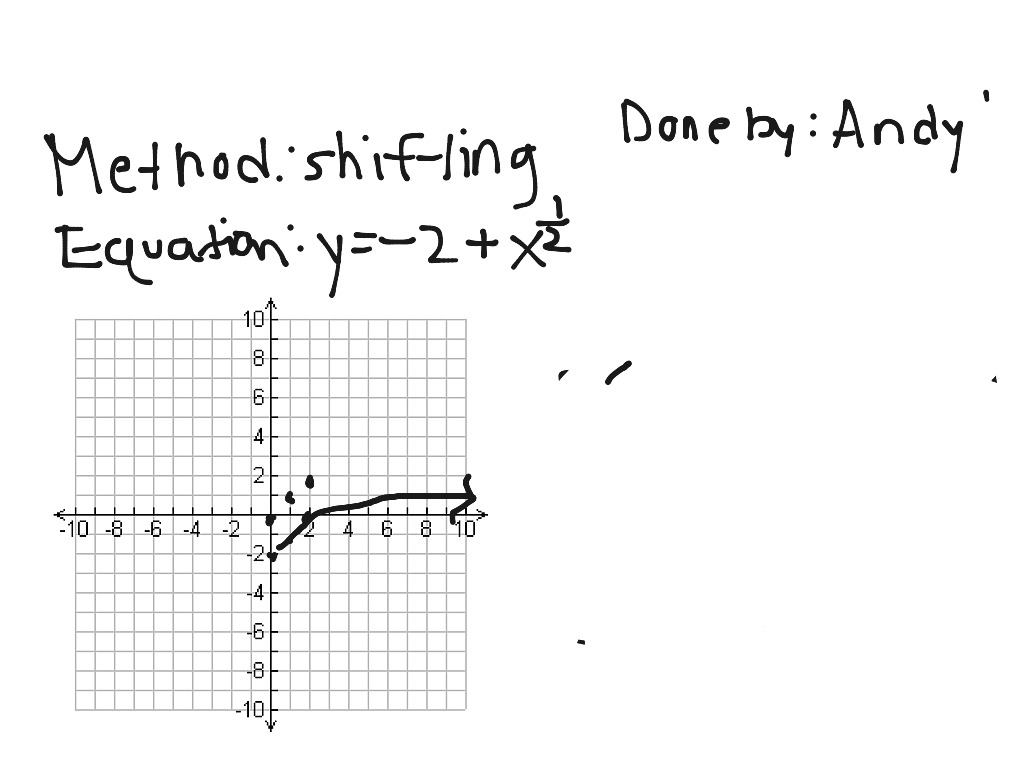 Done by: Andy
Method: shifting
Equation: y = -2 + x^{1/2}
10
8
6
4
2
-10 -8 -6 -4 -2 2 4 6 8 10
-2
-4
-6
-8
-10